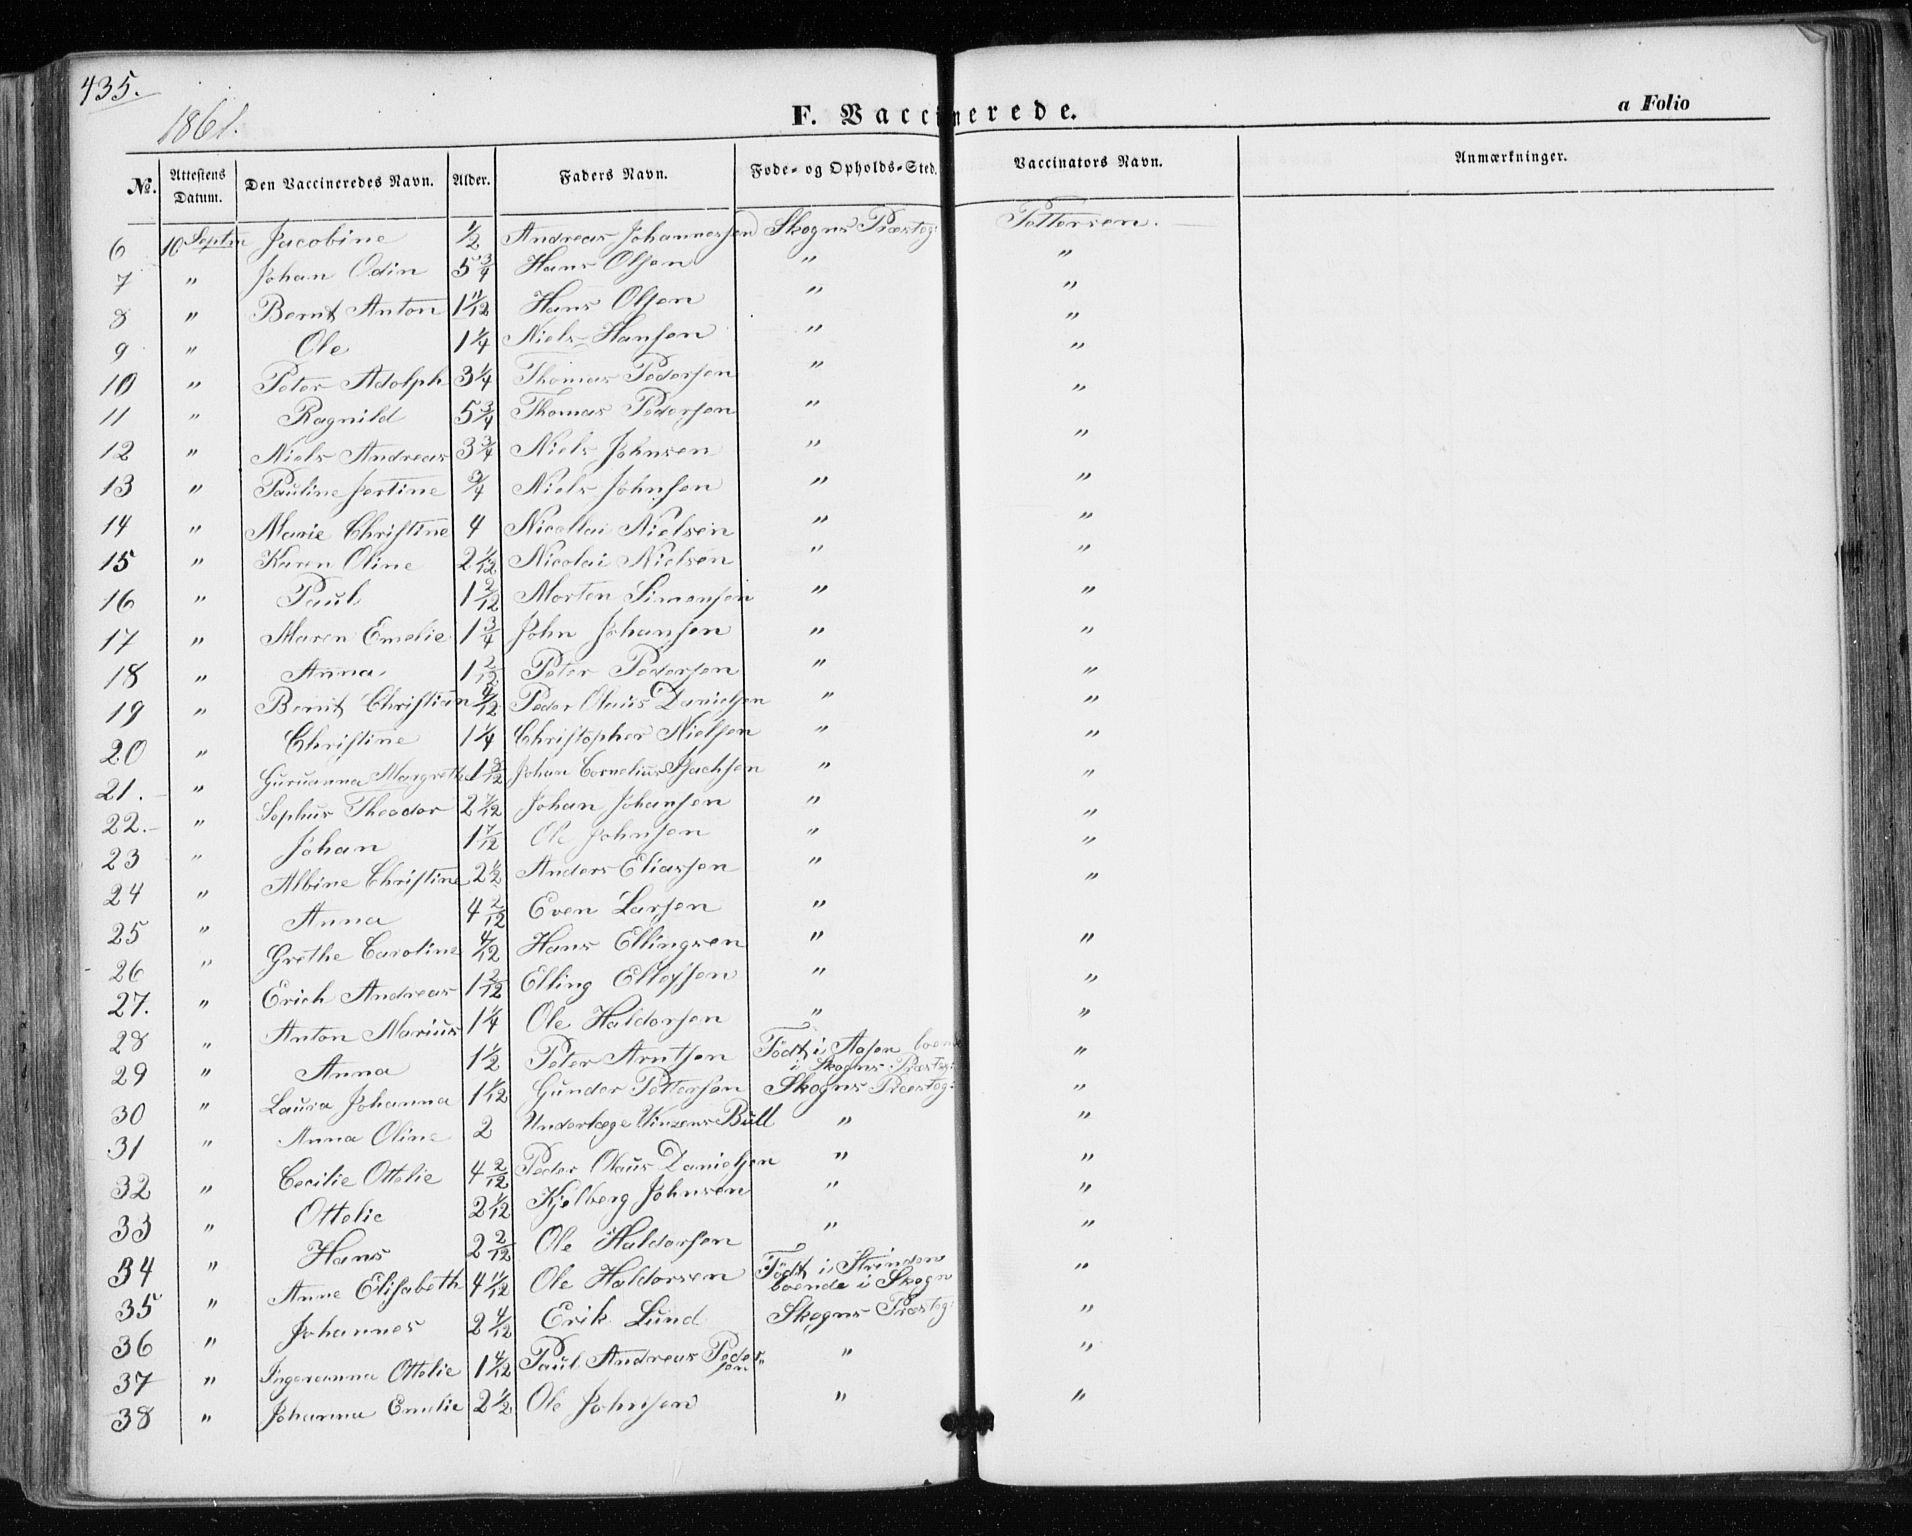 435.
1861.
F. Vaccinerede.
a Folio
No. Attestens Datum. Den Vaccineredes Navn. Alder. Faders Navn. Føde- og Opholds-Sted. Vaccinators Navn. Anmærkninger.
6 10 Septbr Jacobine 1/2 Andreas Johannessen Skogns Præsteg: Pettersen.
7 " Johan Odin 5 3/4 Hans Olsen " "
8 " Bernt Anton 1 11/12 Hans Olsen " "
9 " Ole 1 1/4 Niels Hansen " "
10 " Peter Adolph 3 1/4 Thomas Pedersen " "
11 " Ragnild 5 3/4 Thomas Pedersen " "
12 " Niels Andreas 3 3/4 Niels Johnsen " "
13 " Pauline Jertine 3/4 Niels Johnsen " "
14 " Marie Christine 4 Nicollai Nielsen " "
15 " Karen Oline 2 1/12 Nicolai Nielsen " "
16 " Paul 1 2/12 Morten Simonsen " "
17 " Maren Emelie 1 3/4 John Johansen " "
18 " Anna 1 2/12 Peter Pedersen " "
19 " Bernt Christian 9/12 Peder Olaus Danielsen " "
20 " Christine 1 1/4 Christopher Nielsen " "
21. " Guruanna Margrethe 1 8/12 Johan Cornelius " "
22. " Sophus Theodor 2 7/12 Johan Johansen " "
23 " Johan 1 7/12 Ole Johnsen " "
24 " Albine Christine 2 1/2 Anders Eliassen " "
25 " Anna 4 2/12 Even Larsen "
26 " Grethe Caroline 4/12 Hans Ellingsen " "
27. " Erich Andreas 1 2/12 Elling Ellefsen " "
28 " Anton Marius 1 1/4 Ole Haldorsen " "
29 " Anna 1 1/2 Peter Arntsen Födt i Aasen boende i Skogns Præsteg: "
30 " Laura Johanna 1 1/12 Gunder Pettersen Skogns Præsteg: "
31 " Anna Oline 2 Underlæge Vinzens Bull " "
32 " Cecilie Ottelie 4 2/12 Peder Olaus Danielsen " "
33 " Ottelie 2 1/12 Kjelberg Johnsen " "
34 " Hans 2 2/12 Ole Haldorsen " "
35 " Anne Elisabeth 4 11/12 Ole Haldorsen Födt i Strinden boende i Skogn "
36 " Johannes 2 4/12 Erik Lund Skogns Præsteg: "
37 " Ingeranna Ottelie 1 4/12 Paul Andreas Pedersen " "
38 " Johanna Emelie 2 1/2 Ole Johnsen " "